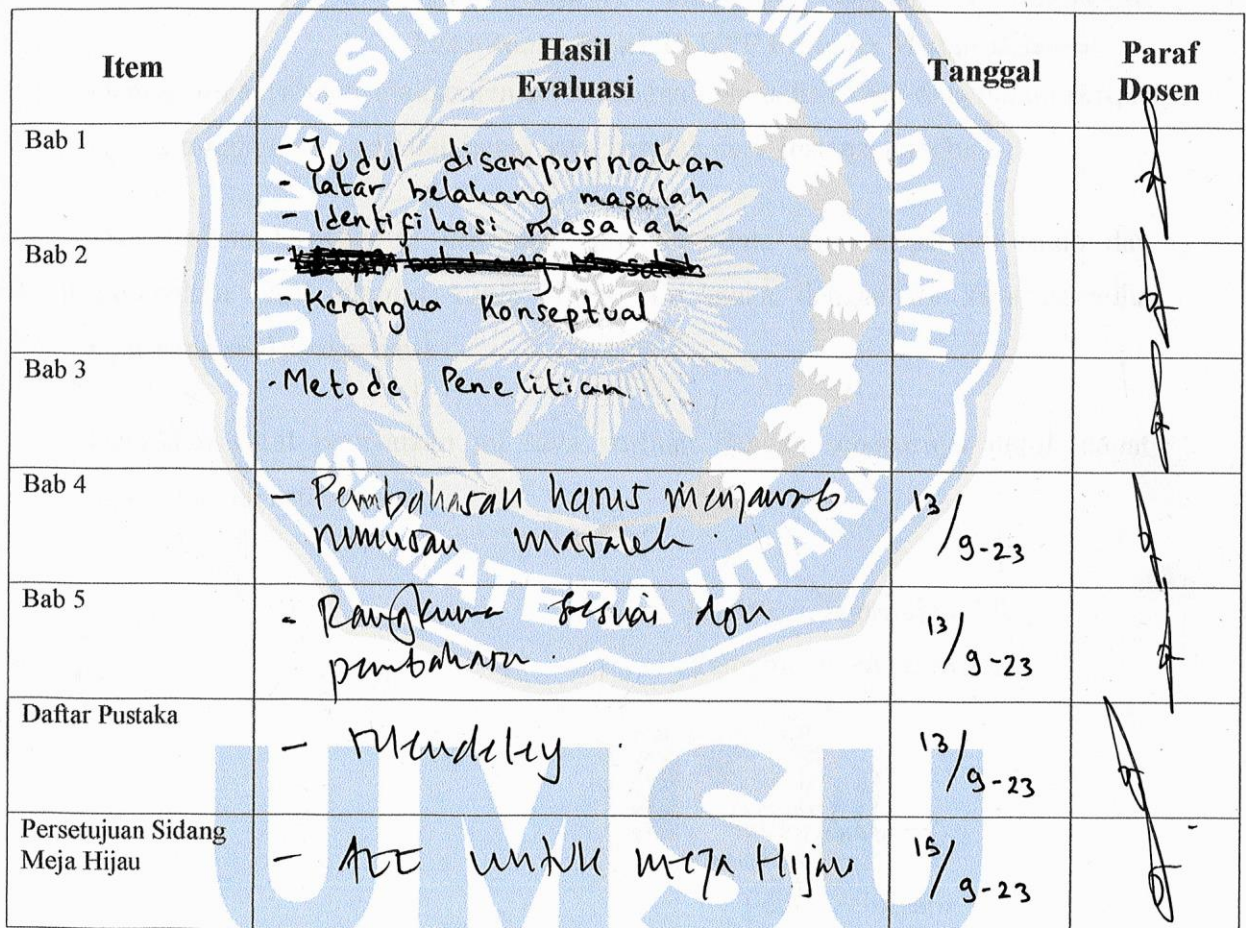 Item Hasil Evaluasi Tanggal Paraf Dosen
Bab 1
- Judul disempurnakan
- latar belakang masalah
- Identifikasi masalah
Bab 2
- Kerangka Konseptual
Bab 3
- Metode Penelitian
Bab 4
- Pembahasan harus menjawab 13/9-23
rumusan masalah.
Bab 5
- Rangkuman sesuai dgn 13/9-23
pembahasan.
Daftar Pustaka
- Mendeley 13/9-23
Persetujuan Sidang
Meja Hijau
- ACC untuk meja Hijau 15/9-23
UNIVERSITAS MUHAMMADIYAH
SUMATERA UTARA
UMSU